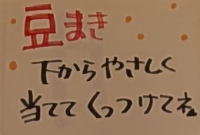 豆まき
下からやさしく
当ててくっつけてね